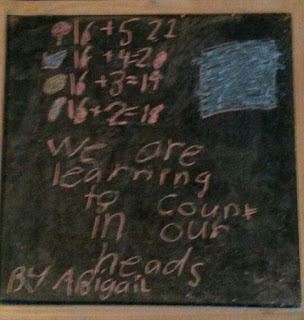 16 + 5 21
16 + 4 = 20
16 + 3 = 19
16 + 2 = 18
we are
learning
to count
in our
heads
BY Abigail